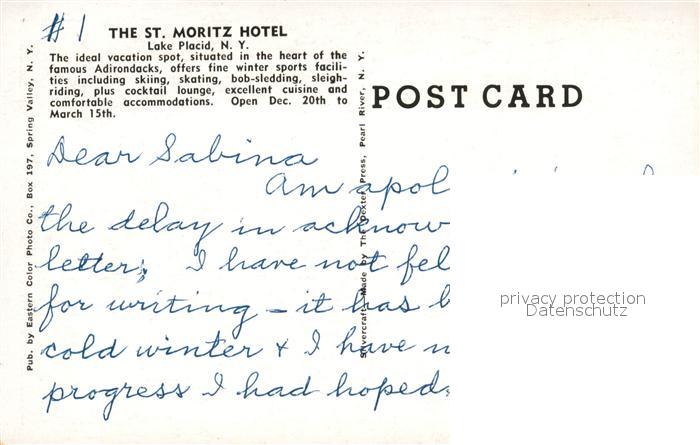 #1
THE ST. MORITZ HOTEL
Lake Placid, N. Y.
The ideal vacation spot, situated in the heart of the
famous Adirondacks, offers fine winter sports facili-
ties including skiing, skating, bob-sledding, sleigh-
riding, plus cocktail lounge, excellent cuisine and
comfortable accommodations. Open Dec. 20th to
March 15th.
Pub. by Eastern Color Photo Co., Box 197, Spring Valley, N. Y.
Silvercraft Made by The Dexter Press, Pearl River, N. Y.
POST CARD
Dear Sabina
Am apol
the delay in acknow
letter; I have not fel
for writing – it has b
cold winter + I have n
progress I had hoped.
privacy protection
Datenschutz